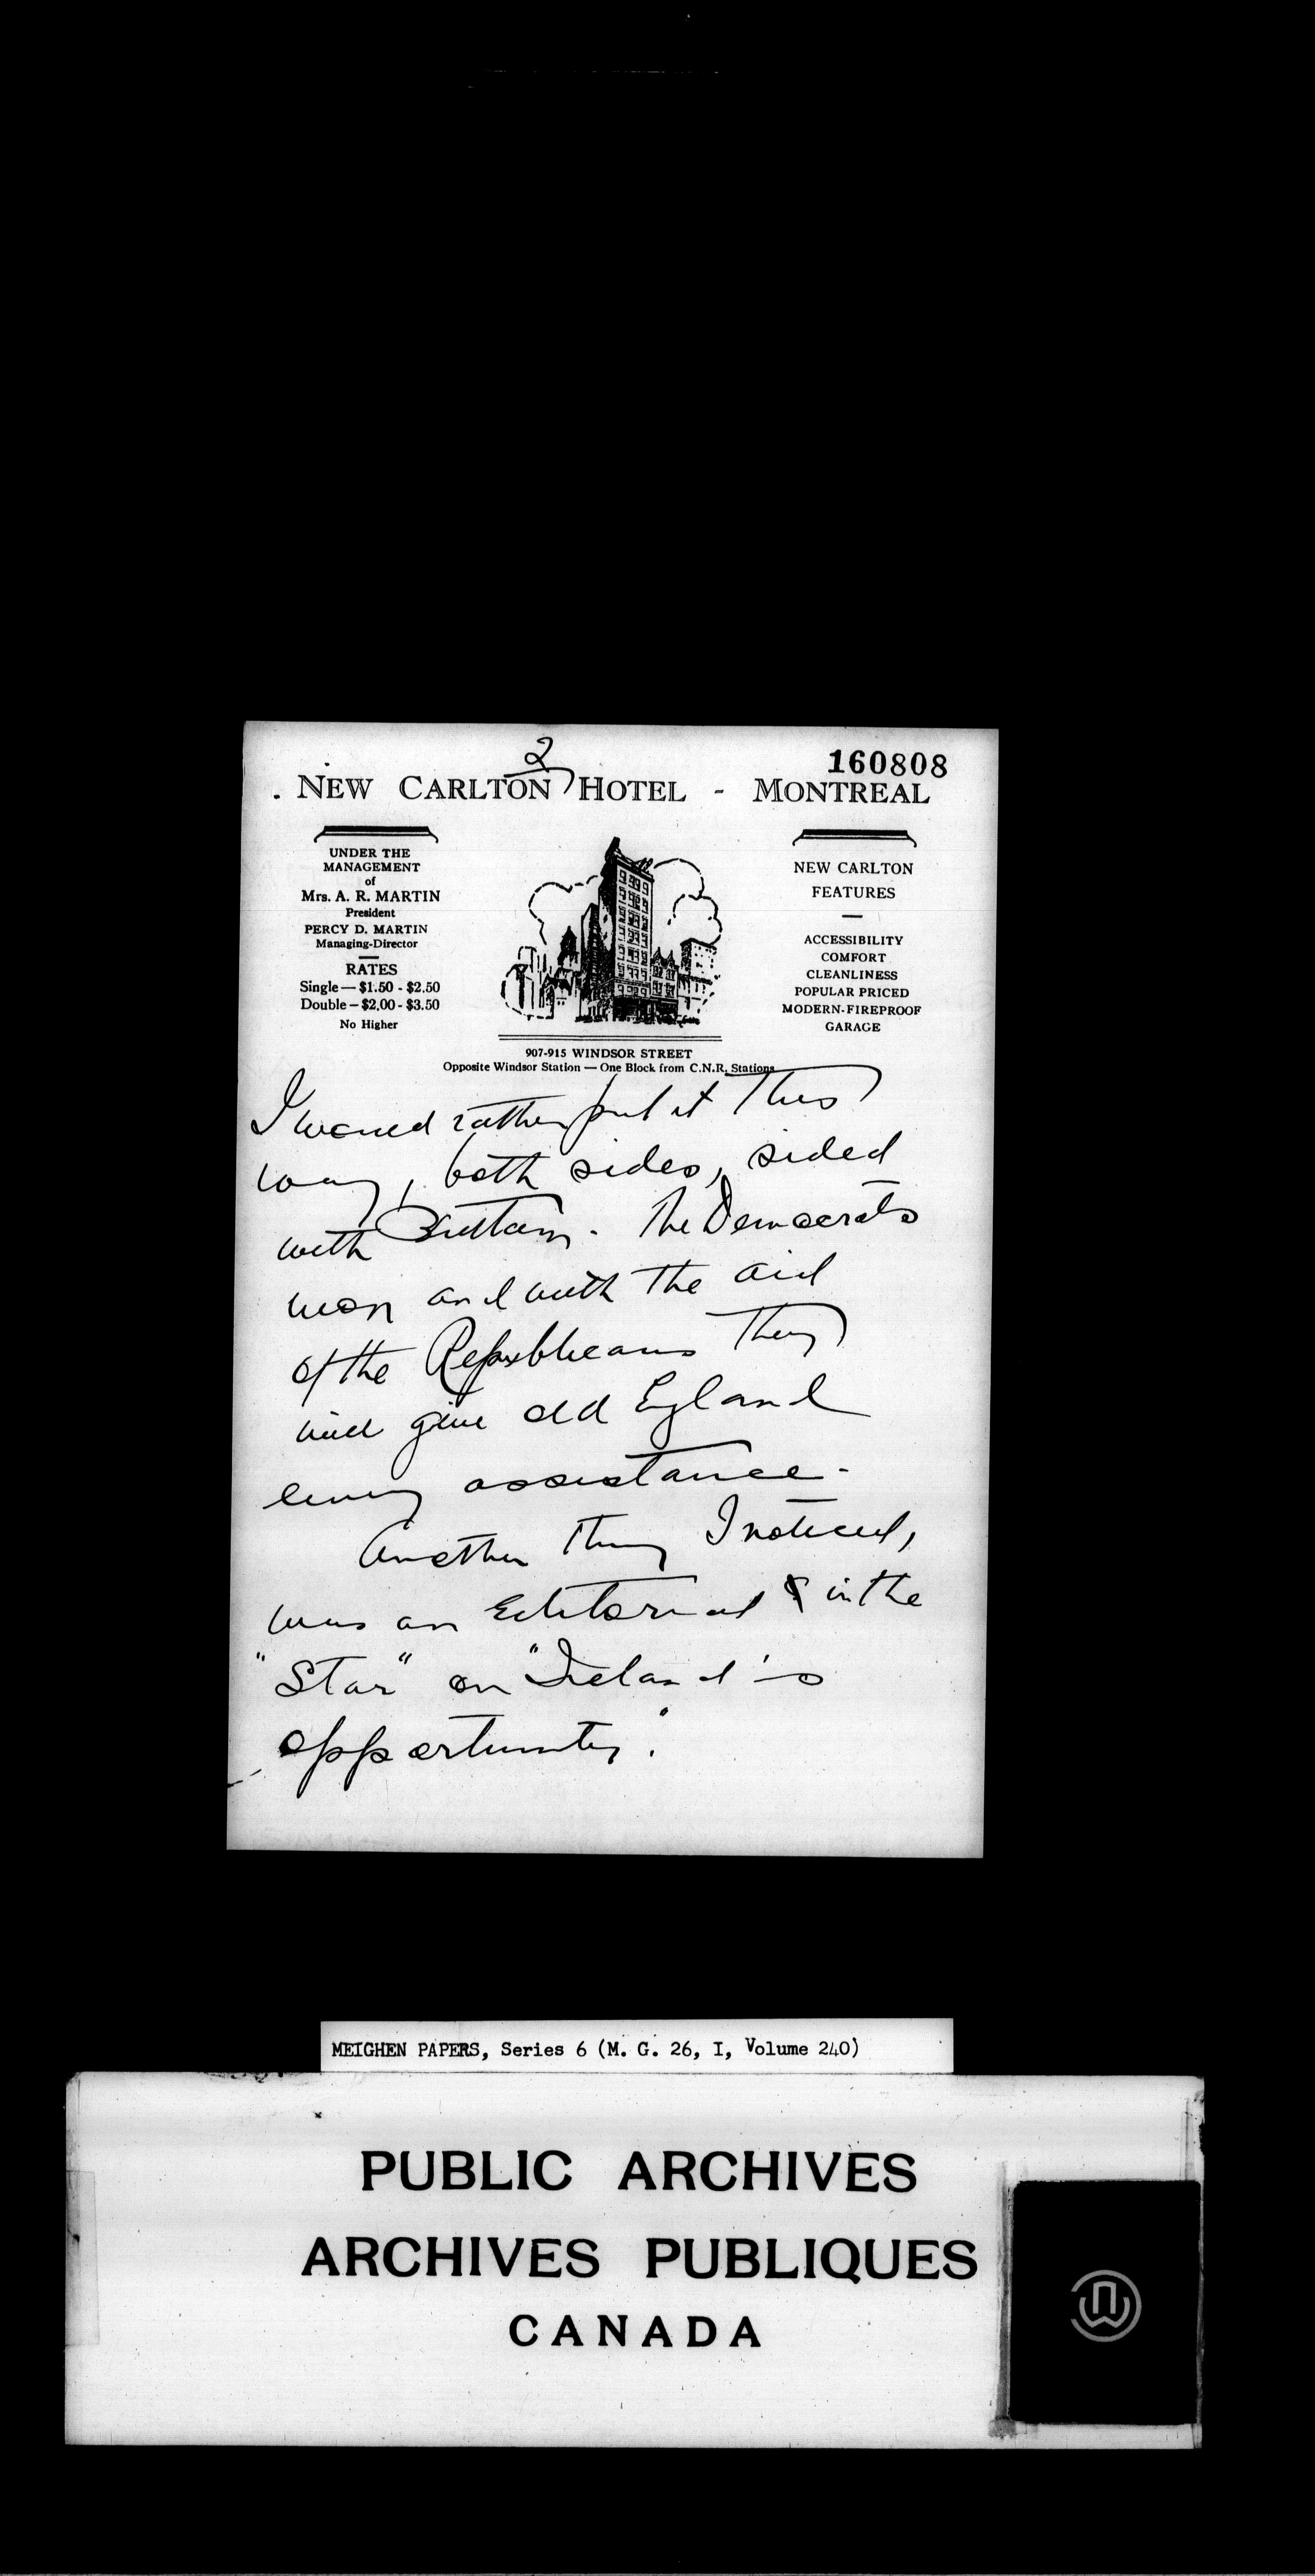 2
160808
NEW CARLTON HOTEL - MONTREAL
UNDER THE
MANAGEMENT
of
Mrs. A. R. MARTIN
President
PERCY D. MARTIN
Managing-Director
RATES
Single — $1.50 - $2.50
Double — $2.00 - $3.50
No Higher
NEW CARLTON
FEATURES
ACCESSIBILITY
COMFORT
CLEANLINESS
POPULAR PRICED
MODERN-FIREPROOF
GARAGE
907-915 WINDSOR STREET
Opposite Windsor Station — One Block from C.N.R. Stations
I would rather put it this
way, both sides, sided
with Brittain. The Democrats
won and with the aid
of the Republicans they
will give old England
every assistance.
Another thing I noticed,
was an Editorial in the
"Star" on "Ireland's
opportunity."
MEIGHEN PAPERS, Series 6 (M. G. 26, I, Volume 240)
PUBLIC ARCHIVES
ARCHIVES PUBLIQUES
CANADA